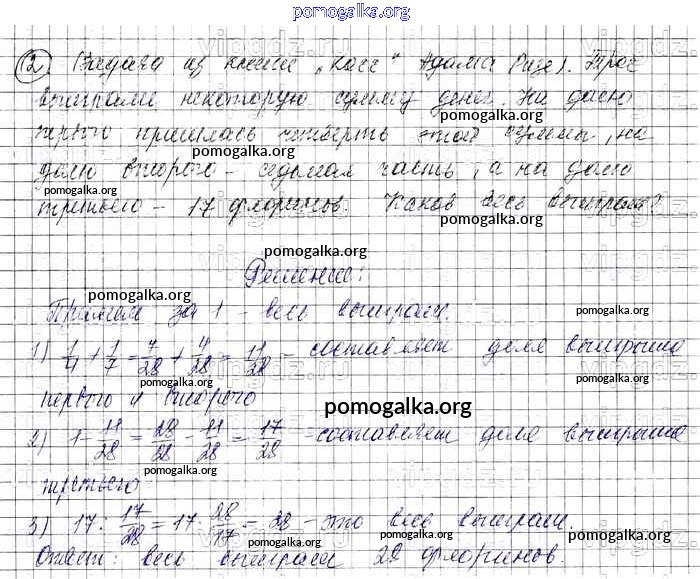 pomogalka.org
2. Задача из книги „Косс“ Адама Ризе). Трое
выиграли некоторую сумму денег. На долю
первого пришлась четверть этой суммы, на
pomogalka.org pomogalka.org
долю второго – седьмая часть, а на долю
pomogalka.org
третьего – 17 флоринов. Каков весь выигрыш?
pomogalka.org
pomogalka.org
Решение:
pomogalka.org
Примем за 1 – весь выигрыш.
pomogalka.org
1) 1/4 + 1/7 = 7/28 + 4/28 = 11/28 – составляет доля выигрыша
pomogalka.org
первого и второго
pomogalka.org
2) 1 - 11/28 = 28/28 - 11/28 = 17/28 – составляет доля выигрыша
pomogalka.org
третьего
3) 17 : 17/28 = 17 · 28/17 = 28 – это весь выигрыш.
pomogalka.org
Ответ: весь выигрыш 28 флоринов.
pomogalka.org